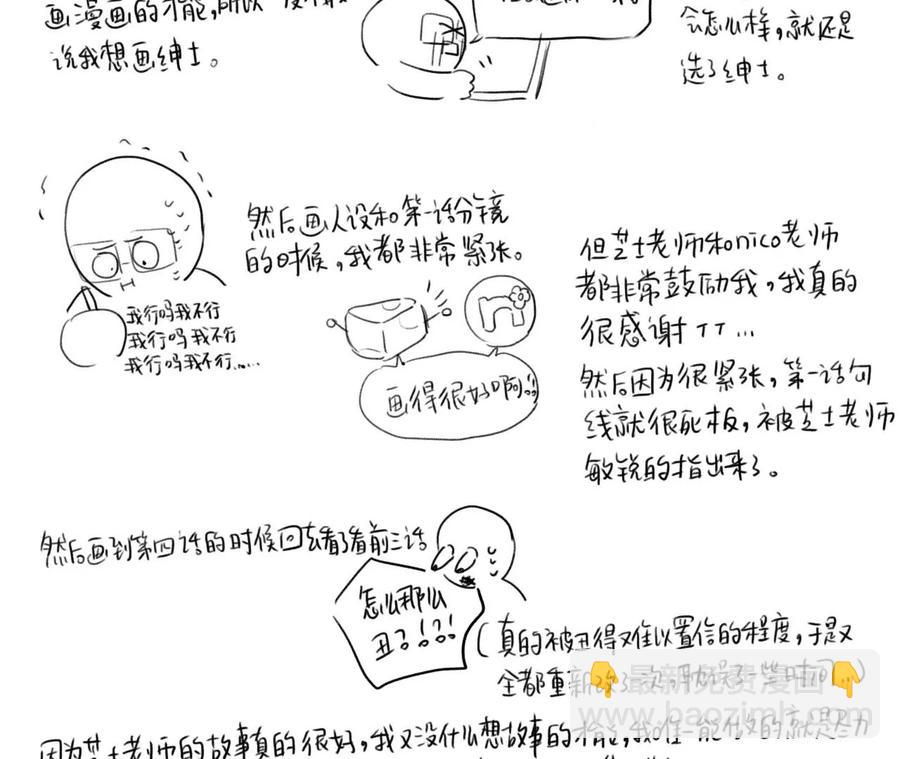 画漫画的才能,所以
说我想画绅士。
会怎么样,就还是
选了绅士。
然后画人设和第一话分镜
的时候,我都非常紧张。
我行吗我不行
我行吗我不行
我行吗我不行……
画得很好啊!!
但芝士老师和nico老师
都非常鼓励我,我真的
很感谢TT...
然后因为很紧张,第一话勾
线就很死板,被芝士老师
敏锐的指出来了。
然后画到第四话的时候回去看了看前三话
怎么那么
丑?!?!
(真的被丑得难以置信的程度,于是又
全都重新改了一次,耽误了一些时间...)
最新免费漫画
www.baozimh.com
因为芝士老师的故事真的很好,我又没什么想故事的才能,我唯一能做的就是尽力